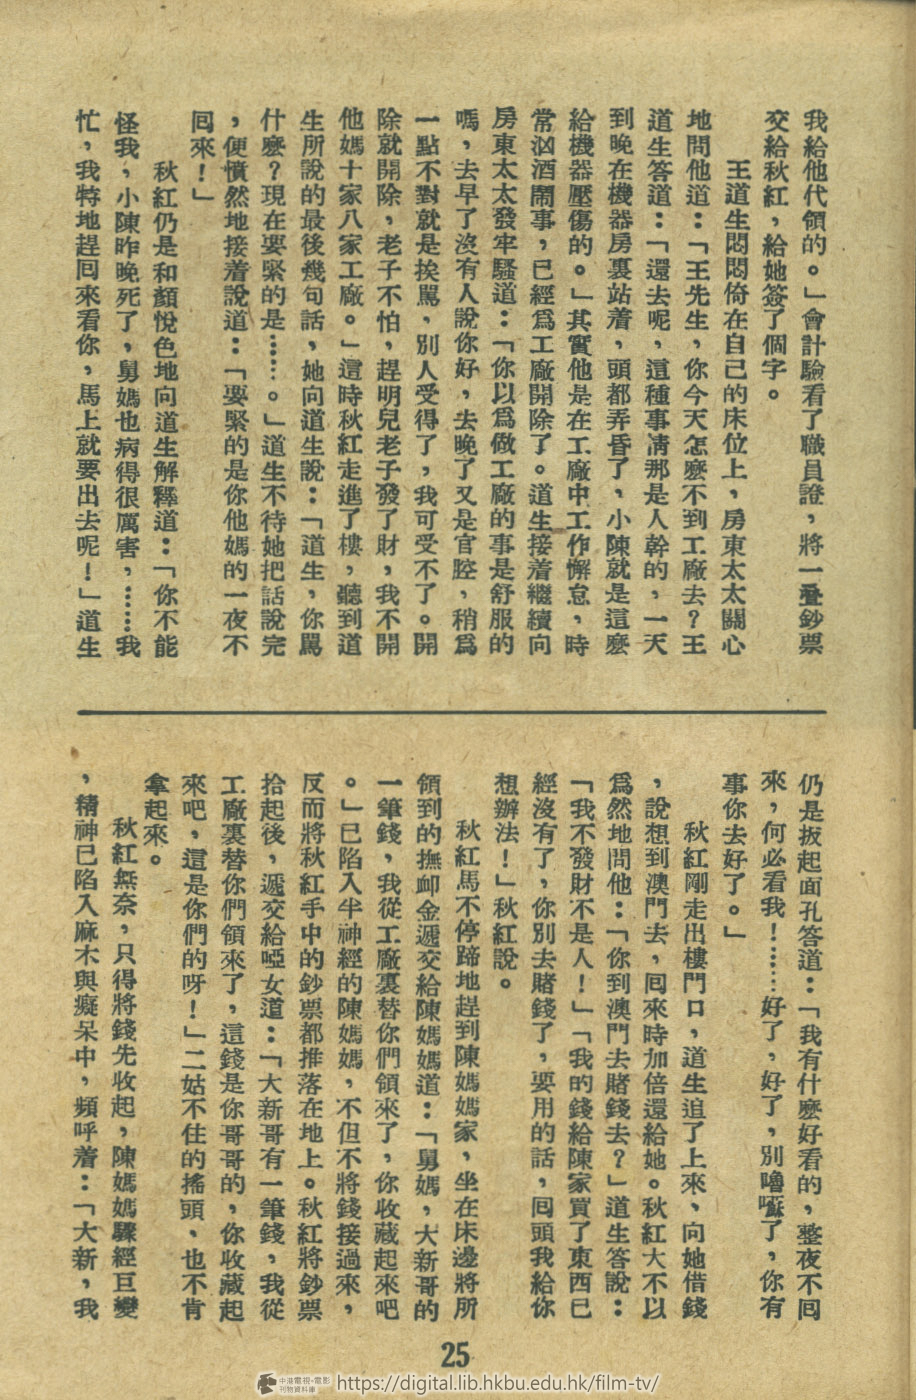 我給他代領的。」會計驗看了職員證，將一疊鈔票
交給秋紅，給她簽了個字。
王道生悶悶倚在自己的床位上，房東太太關心
地問他道：「王先生，你今天怎麼不到工廠去？王
道生答道：「還去呢，這種事凊那是人幹的，一天
到晚在機器房裏站着，頭都弄昏了，小陳就是這麼
給機器壓傷的。」其實他是在工廠中工作懈怠，時
常汹酒鬧事，已經爲工廠開除了。道生接着繼續向
房東太太發牢騷道：「你以爲做工廠的事是舒服的
嗎，去早了沒有人說你好，去晚了又是官腔，稍爲
一點不對就是挨罵，別人受得了，我可受不了。開
除就開除，老子不怕，趕明兒老子發了財，我不開
他媽十家八家工廠。」這時秋紅走進了樓，聽到道
生所說的最後幾句話，她向道生說：「道生，你罵
什麼？現在要緊的是……。」道生不待她把話說完
，便憤然地接着說道：「要緊的是你他媽的一夜不
囘來！」
秋紅仍是和顏悅色地向道生解釋道：「你不能
怪我，小陳昨晚死了，舅媽也病得很厲害，……我
忙，我特地趕囘來看你，馬上就要出去呢！」道生
仍是扳起面孔答道：「我有什麼好看的，整夜不囘
來，何必看我！……好了，好了，別嚕囌了，你有
事你去好了。」
秋紅剛走出樓門口，道生追了上來、向她借錢
，說想到澳門去，囘來時加倍還給她。秋紅大不以
爲然地問他：「你到澳門去賭錢去？」道生答說：
「我不發財不是人！」「我的錢給陳家買了東西已
經沒有了，你別去賭錢了，要用的話，囘頭我給你
想辦法！」秋紅說。
秋紅馬不停蹄地趕到陳媽媽家，坐在床邊將所
領到的撫卹金遞交給陳媽媽道：「舅媽，大新哥的
一筆錢，我從工廠裏替你們領來了，你收藏起來吧
。」已陷入半神經的陳媽媽，不但不將錢接過來，
反而將秋紅手中的鈔票都推落在地上。秋紅將鈔票
拾起後，遞交給啞女道：「大新哥有一筆錢，我從
工廠裏替你們領來了，這錢是你哥哥的，你收藏起
來吧，這是你們的呀！」二姑不住的搖頭、也不肯
拿起來。
秋紅無奈，只得將錢先收起，陳媽媽驟經巨變
，精神已陷入麻木與癡呆中，頻呼着：「大新，我
25
中港電視·電影
刊物資料庫
https://digital.lib.hkbu.edu.hk/film-tv/